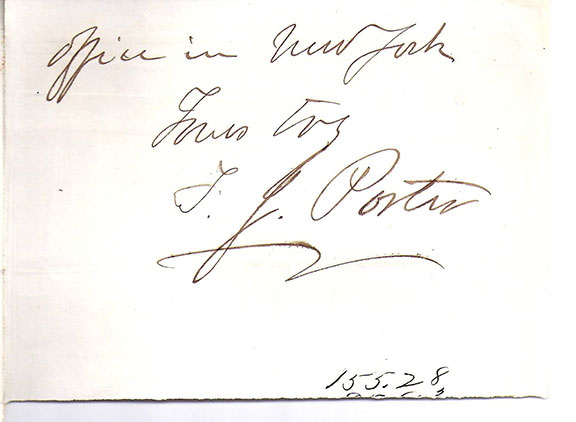 office in New York
Yours Try
T. J. Porter
155.28